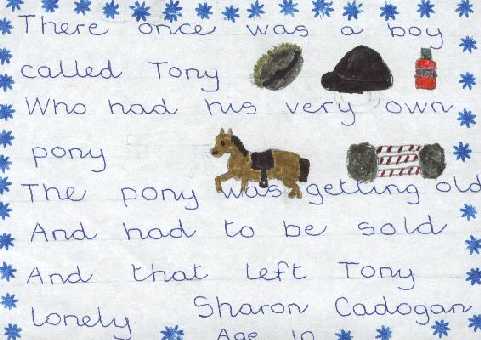 There once was a boy
called Tony
Who had his very own
pony
The pony was getting old
And had to be sold
And that left Tony
Lonely Sharon Cadogan
Age 10